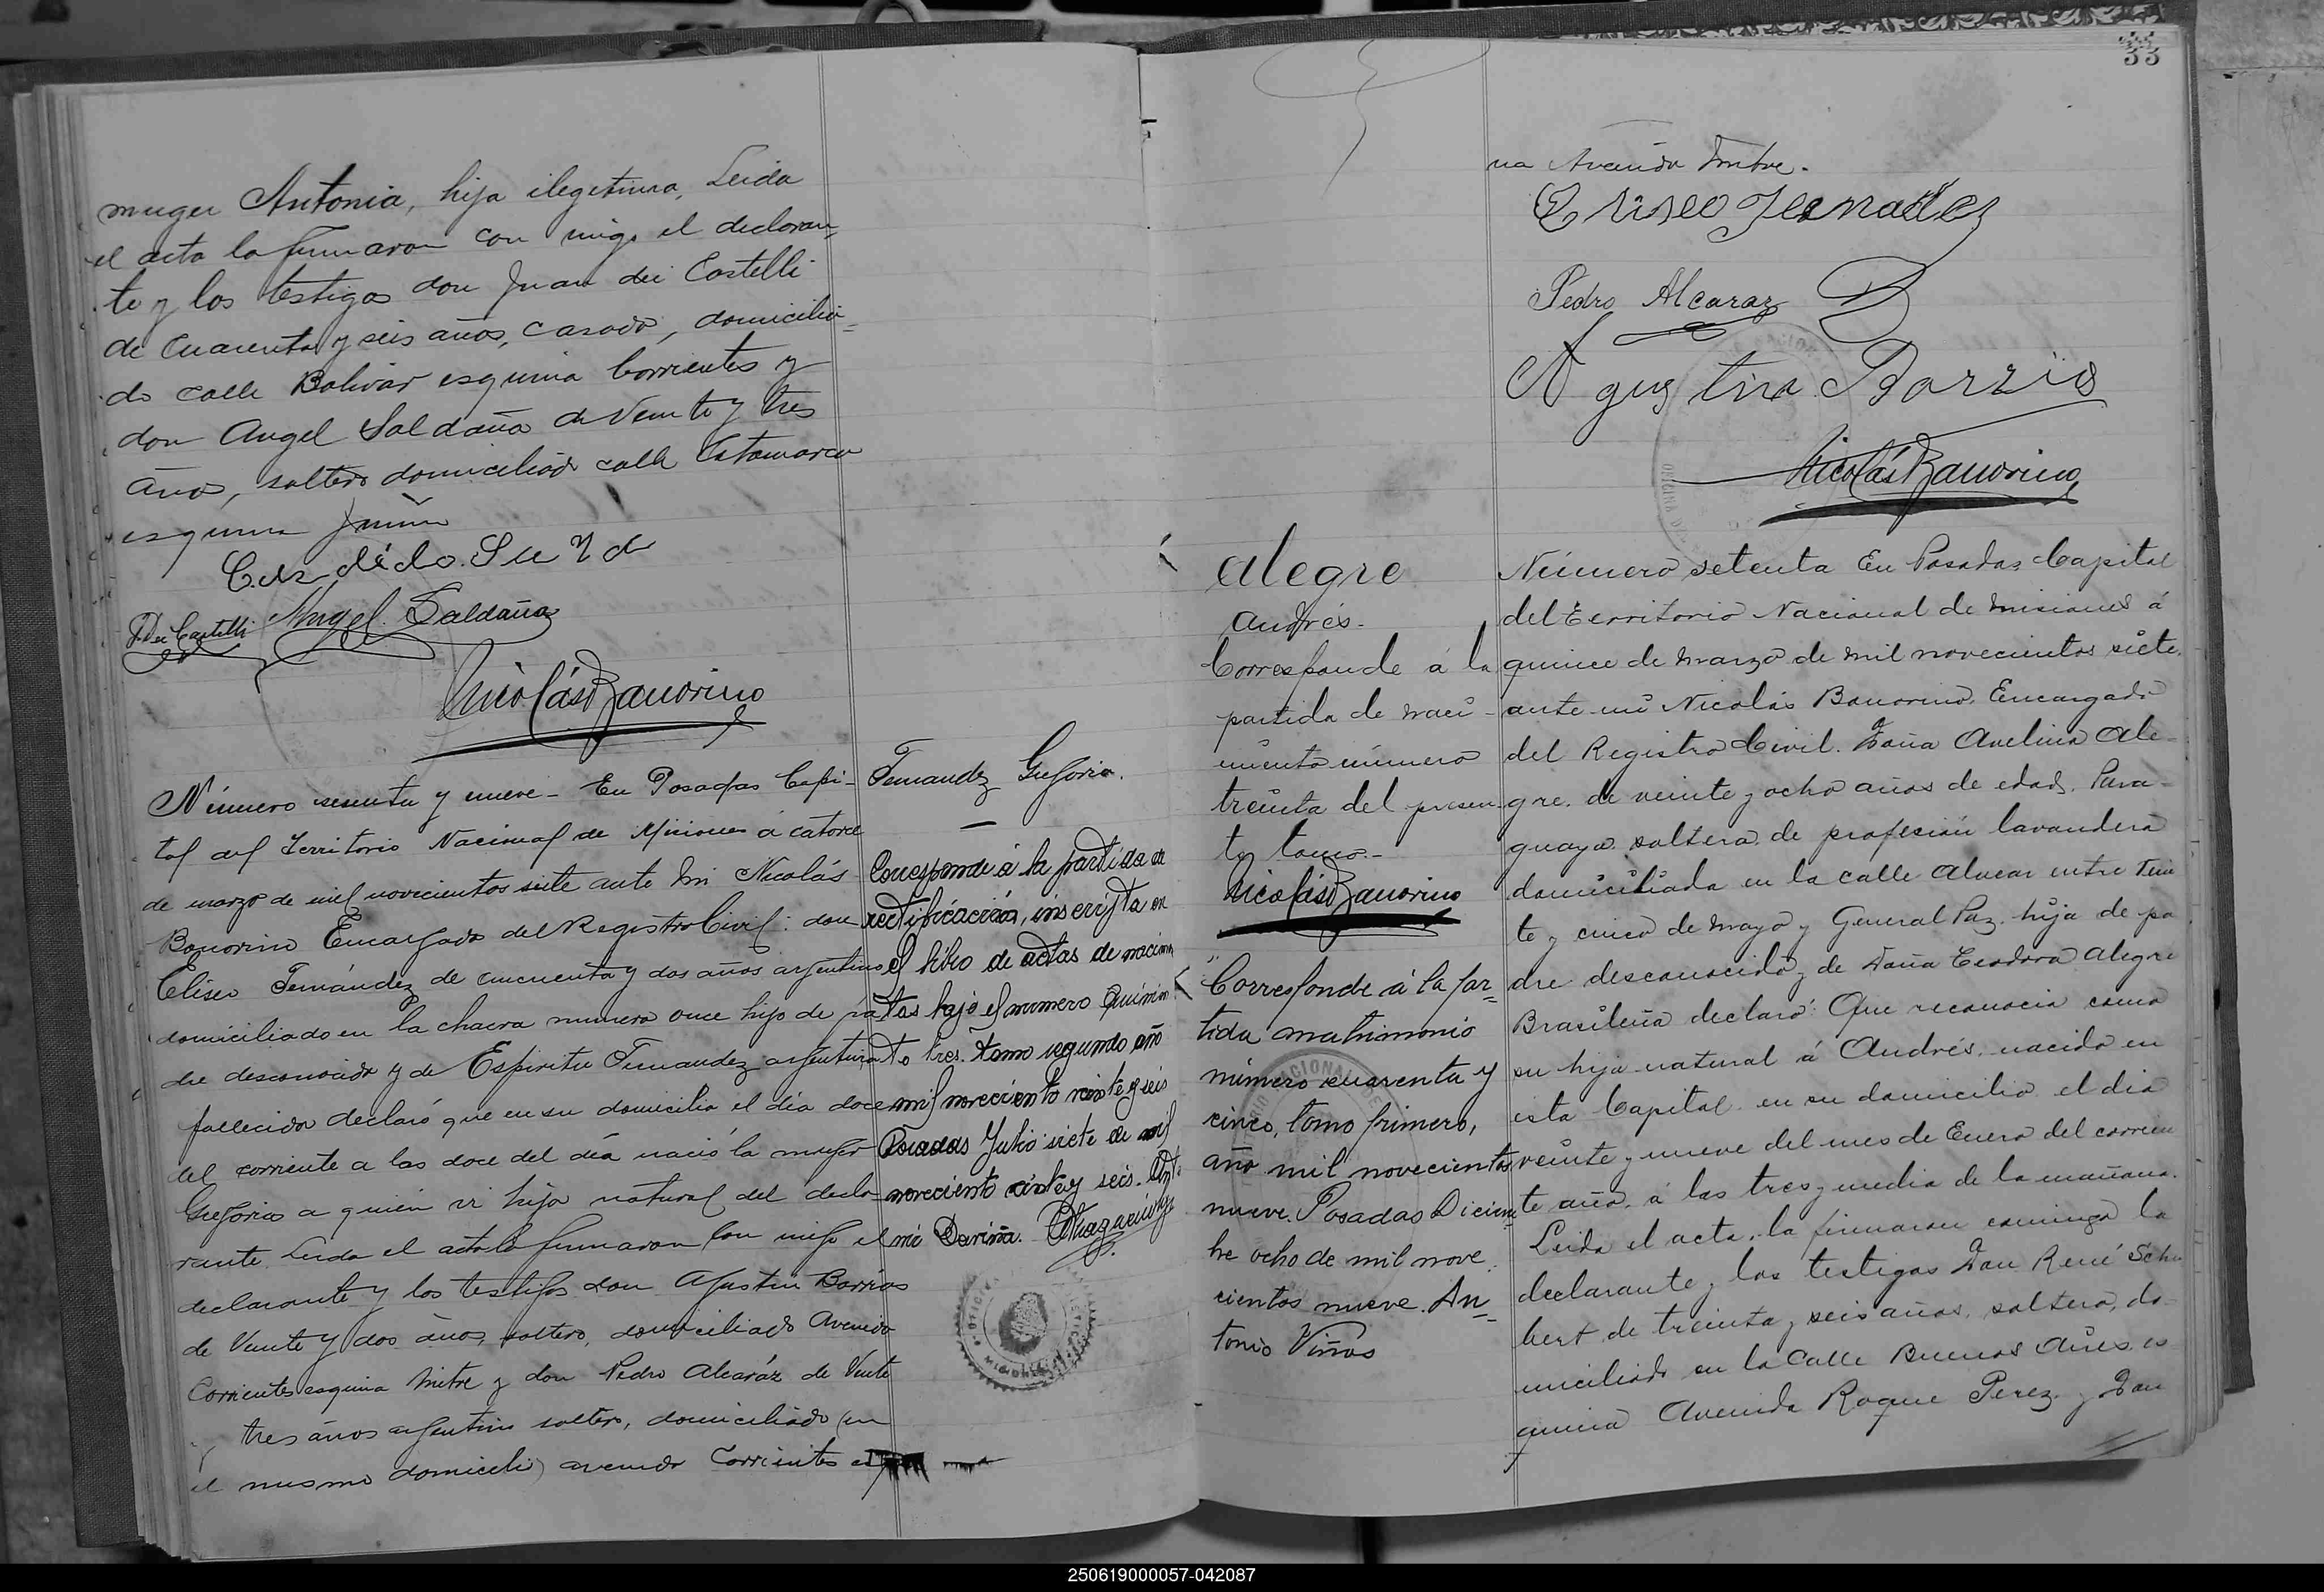 muger Antonia, hija ilegetima, Leida
el acta la firmaron con migo el declaran-
te y los testigos don Juan dei Castelli
de Cuarenta y seis años, casado, domicilia-
do calle Bolivar esquina Corrientes y
don Angel Saldaña de Veinte y tres
años, soltero domiciliado calle Catamarca
esquina Junin
Candido
J. Dei Castelli Angel Saldaña
Nicolás Bonorino
Número sesenta y nueve - En Posadas Capi-
tal del Territorio Nacional de Misiones á catorce
de marzo de mil novecientos siete ante mi Nicolás
Bonorino Encargado del Registro Civil: don
Eliseo Fernández de cincuenta y dos años argentino
domiciliado en la chacra numero once hijo de pa-
dre desconocido y de Espiritu Fernandez argentina
fallecida declaró que en su domicilio el día doce
del corriente a las doce del día nació la mujer
Gregoria a quien vi hija natural del decla-
rante, Leida el acta la firmaron con migo el
declarante y los testigos don Agustin Barrios
de Veinte y dos años, soltero, domiciliado Avenida
Corrientes esquina Mitre y don Pedro Alcaráz de Veinte
y tres años argentino soltero, domiciliado (en
el mismo domicilio) avenida Corrientes
Fernandez Gregoria.
Corresponde á la partida de
rectificación, inscripta en
el libro de actas de nacimien
tos bajo el numero Quinien
to tres. tomo segundo año
mil noveciento veinte y seis
Posadas Julio siete de mil
novecientos veinte y seis. Ante
mi
33
na Avenida Mitre.
Eliseo Fernandez
Pedro Alcaraz
Agustin Barrios
Nicolás Bonorino
Alegre
Andrés.
Corresponde á la
partida de naci-
miento número
treinta del presen-
te tomo.-
Nicolás Bonorino
Corresponde á la par-
tida matrimonio
número cuarenta y
cinco, tomo primero,
año mil novecientos
nueve. Posadas Diciem
bre ocho de mil nove
cientos nueve. An-
tonio Viñas
Número setenta En Posadas Capital
del Territorio Nacional de Misiones á
quince de Marzo de mil novecientos siete,
ante mi Nicolás Bonorino, Encargado
del Registro Civil. Doña Avelina Ale-
gre, de veinte y ocho años de edad, Para-
guaya, soltera, de profesión lavandera
domiciliada en la calle Alvear entre Vein
te y cinco de Mayo y General Paz, hija de pa
dre desconocido y de Doña Teodora Alegre
Brasileña declaró: Que reconocia como
su hijo natural á Andrés, nacido en
esta Capital en su domicilio el dia
veinte y nueve del mes de Enero del corrien
te año, á las tres y media de la mañana.
Leida el acta, la firmaron conmigo la
declarante y los testigos Don René Schu
bert de treinta y seis años, soltero, do-
miciliado en la Calle Buenos Aires es
quina Avenida Roque Perez y Don
250619000057-042087